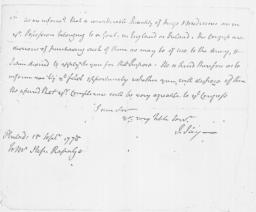 Sir
As we are informed that a considerable Quantity of Drugs & Medicines are in
yr. Possession belonging to a Gent. in England or Ireland. The Congress are
desirous of purchasing such of them as may be of use to the Army, &
I am desired by to apply to you for that Purpose. Be so kind therefore as to
inform me by ye first opportunity whether you will dispose of them
Be assured that yr. Compliance will be very agreeable to ye Congress
I am Sir
yr. very hble Servt.
Philada. 18 Sept. 1775
To Mr